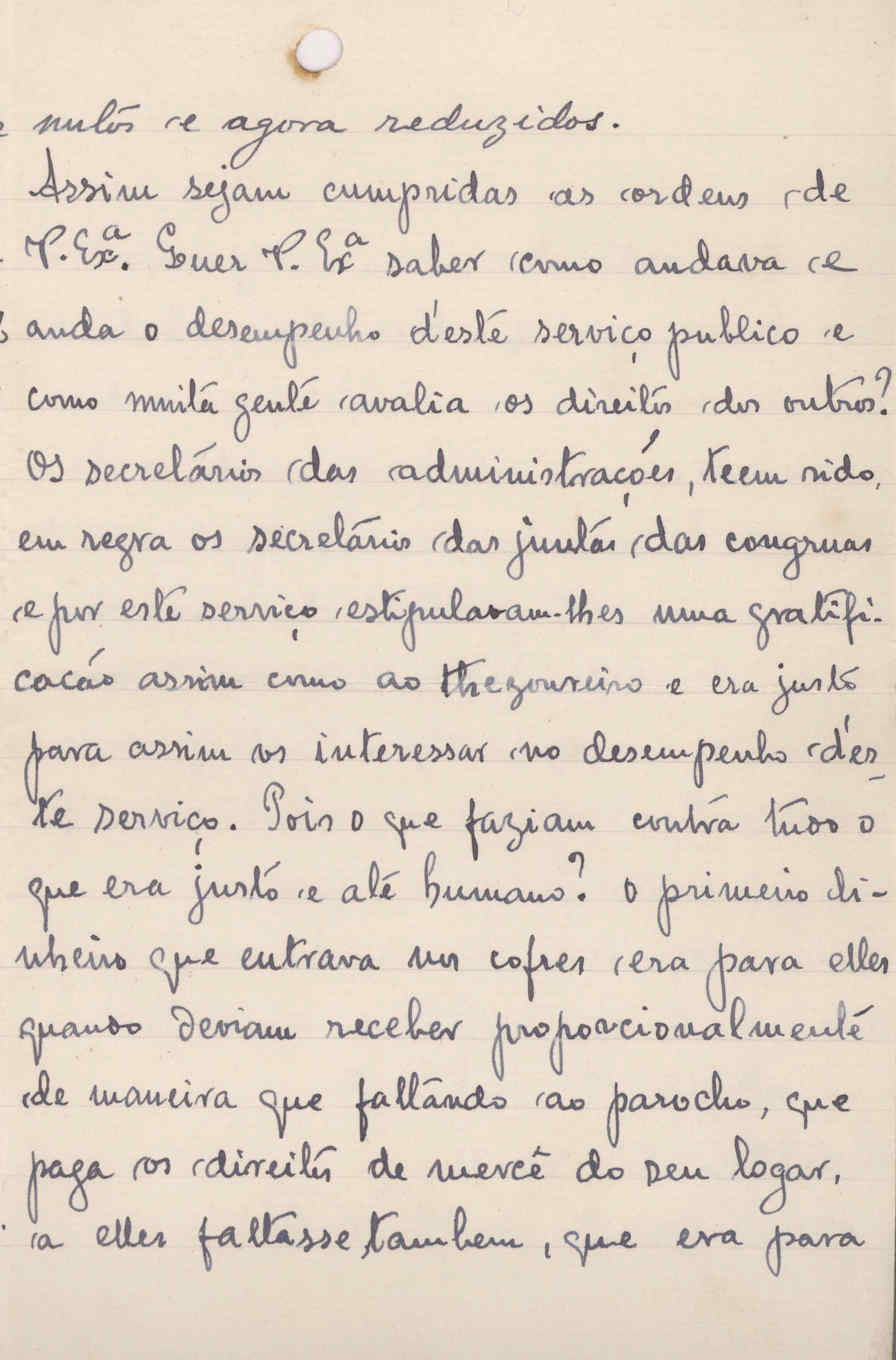 nutos e agora reduzidos.
Assim sejam cumpridas as ordens de
V. Exª. Quer V. Exª saber como andava e
anda o desempenho d'este serviço publico e
como muita gente avalia os direitos dos outros?
Os secretários das administrações, teem sido,
em regra os secretários das juntas das congruas
e por este serviço estipulavam-lhes uma gratifi-
cacão assim como ao thezoureiro e era justo
para assim os interessar no desempenho d'es-
te serviço. Pois o que faziam contra tudo o
que era justo e até humano? O primeiro di-
nheiro que entrava nos cofres era para elles
quando deviam receber proporcionalmente
de maneira que faltando ao parocho, que
paga os direitos de mercê do seu logar,
a elles faltasse tambem, que era para